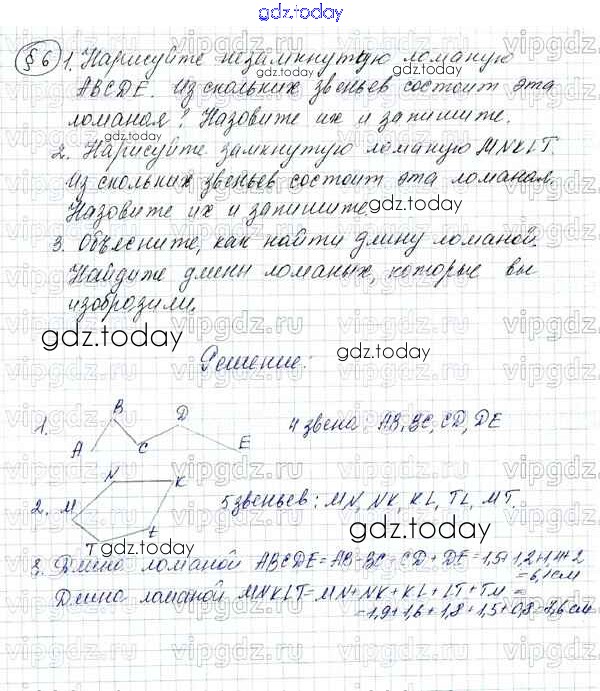 gdz.today
§ 6 1. Нарисуйте незамкнутую ломаную
ABCDE. Из скольких звеньев состоит эта
ломаная? Назовите их и запишите.
2. Нарисуйте замкнутую ломаную MNKLT.
Из скольких звеньев состоит эта ломаная.
Назовите их и запишите
gdz.today
3. Объясните, как найти длину ломаной.
Найдите длени ломаных, которые вы
изоброзили.
gdz.today
Решение:
gdz.today
1. A B C D E 4 звена: AB, BC, CD, DE
2. M N K L T 5 звеньев: MN, NK, KL, TL, MT.
gdz.today
gdz.today
3. Длина ломаной ABCDE=AB+BC+CD+DE=1,5+1,2+1,4+2
=6,1см
Длина ломаной MNKLT=MN+NK+KL+LT+TM=
=1,9+1,6+1,8+1,5+0,8=7,6см
vipgdz.ru